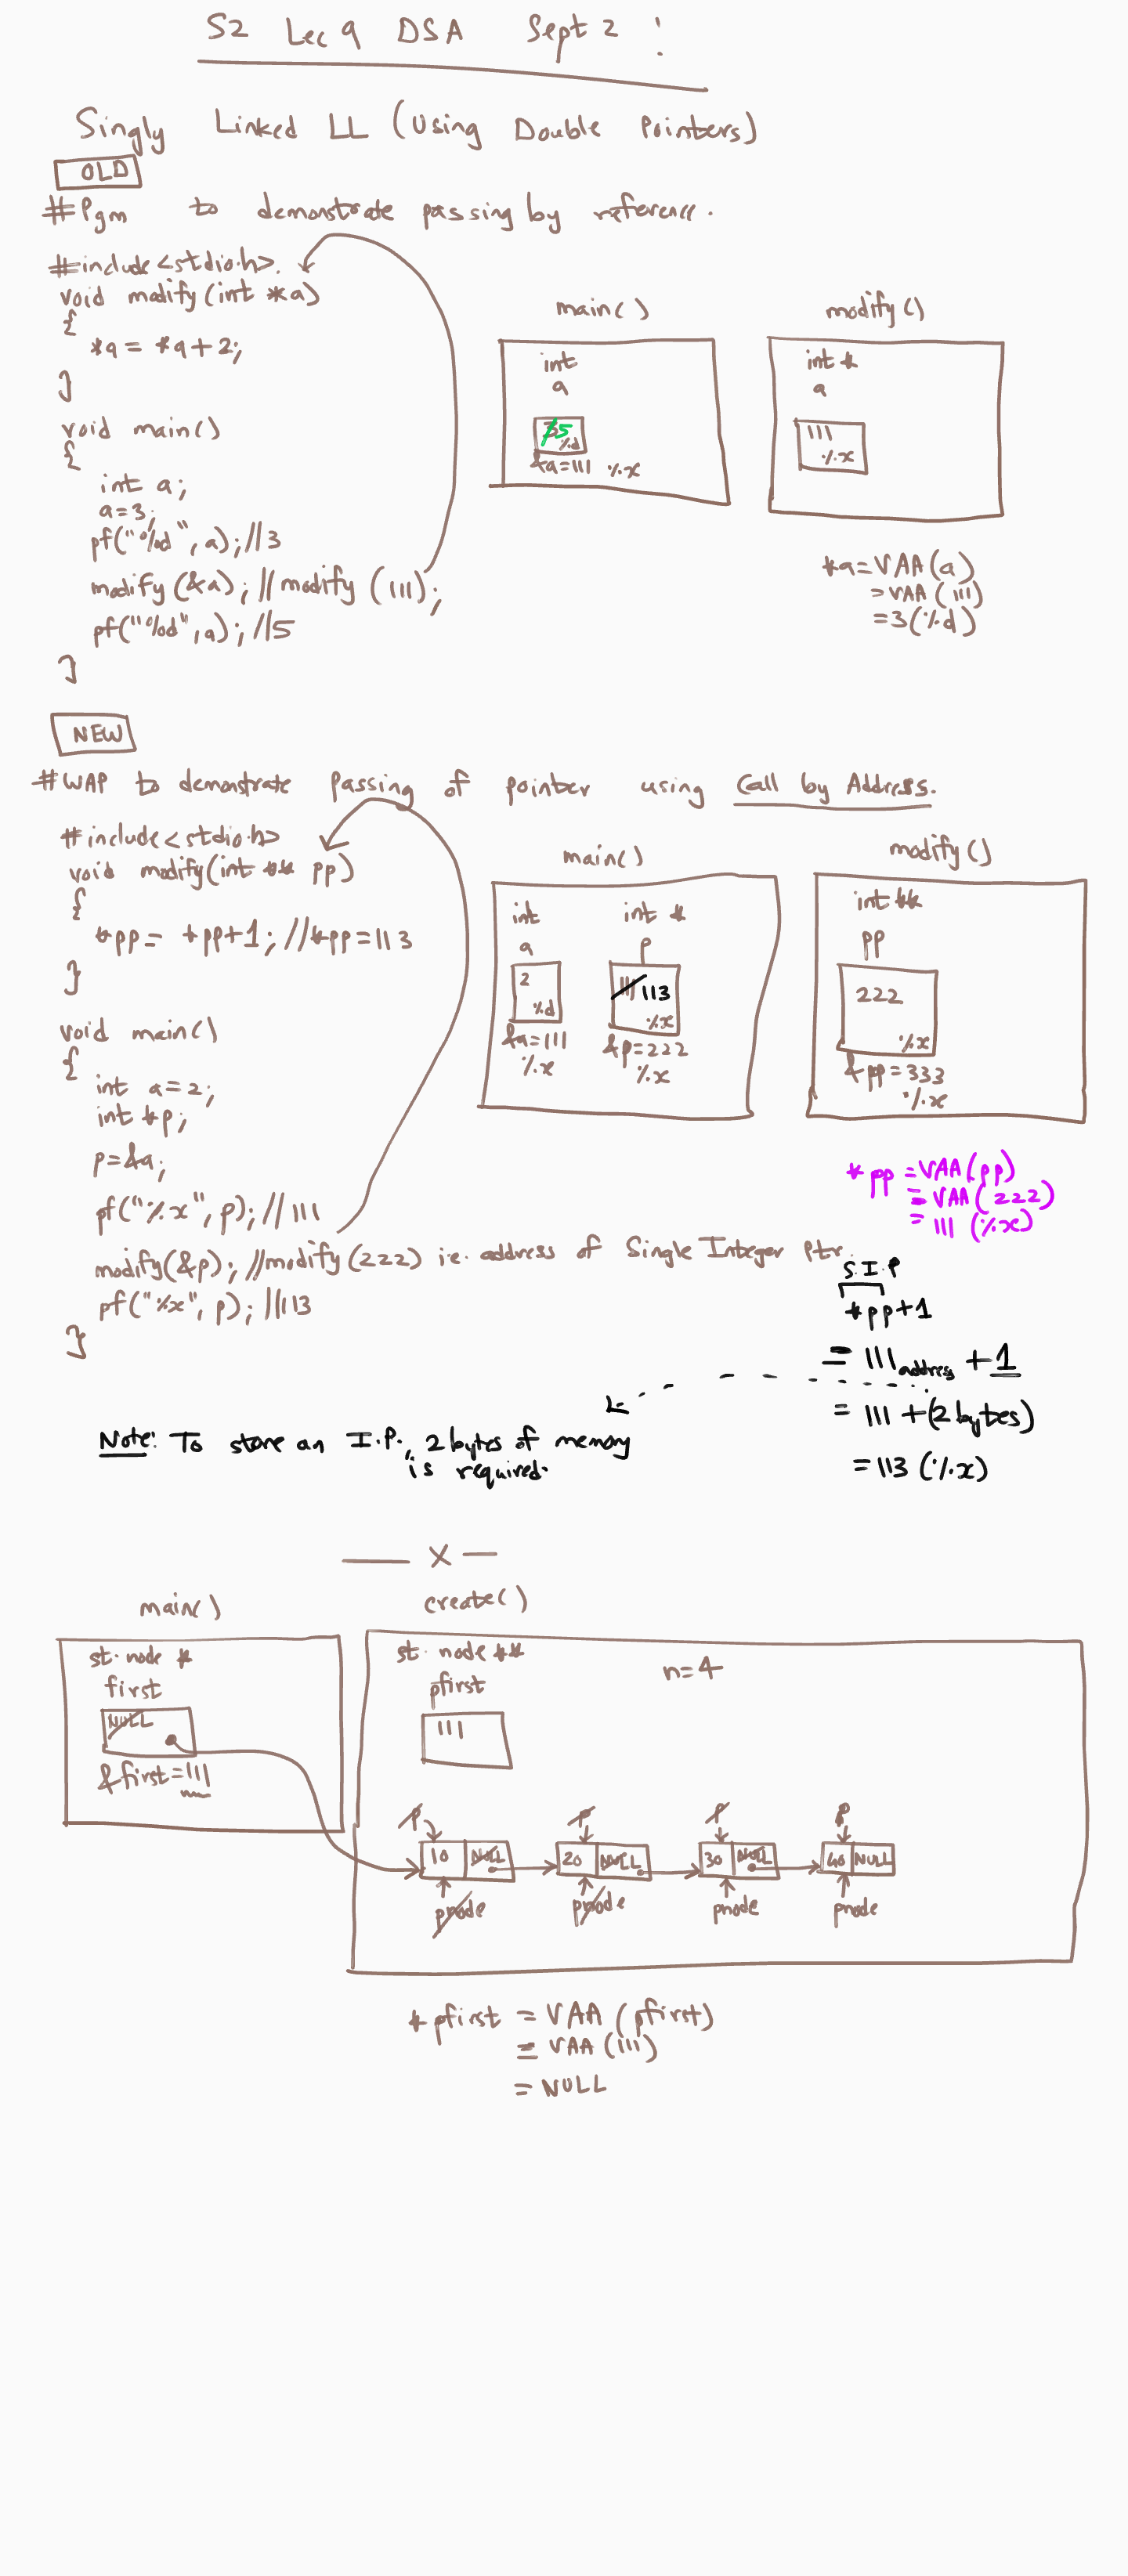 S2 Lec 9 DSA Sept 2 :
Singly Linked LL (Using Double Pointers)
OLD
#Pgm to demonstrate passing by reference.
#include<stdio.h>
void modify(int *a)
{
*a = *a+2;
}
void main()
{
int a;
a=3;
pf("%d", a); //3
modify(&a); // modify (111);
pf("%d", a); //5
}
main()
int
a
3 5
%d
&a=111 %x
modify()
int *
a
111
%x
*a=VAA(a)
=VAA(111)
=3(%d)
NEW
#WAP to demonstrate Passing of pointer using Call by Address.
#include<stdio.h>
void modify(int ** pp)
{
*pp = *pp+1; //*pp=113
}
void main()
{
int a=2;
int *p;
p=&a;
pf("%x", p); //111
modify(&p); //modify(222) i.e. address of Single Integer Ptr.
pf("%x", p); //113
}
main()
int
a
2
%d
&a=111
%x
int *
p
111 113
%x
&p=222
%x
modify()
int **
pp
222
%x
&pp=333
%x
*pp =VAA(pp)
= VAA(222)
= 111 (%x)
S.I.P
*pp+1
= 111 address + 1
= 111 + (2 bytes)
= 113 (%x)
Note: To store an I.P., 2 bytes of memory
is required.
X
main()
st. node *
first
NULL
&first=111
create()
st. node **
pfirst
111
n=4
p p p p
10 NULL 20 NULL 30 NULL 40 NULL
pnode pnode pnode pnode
*pfirst = VAA (pfirst)
= VAA(111)
= NULL